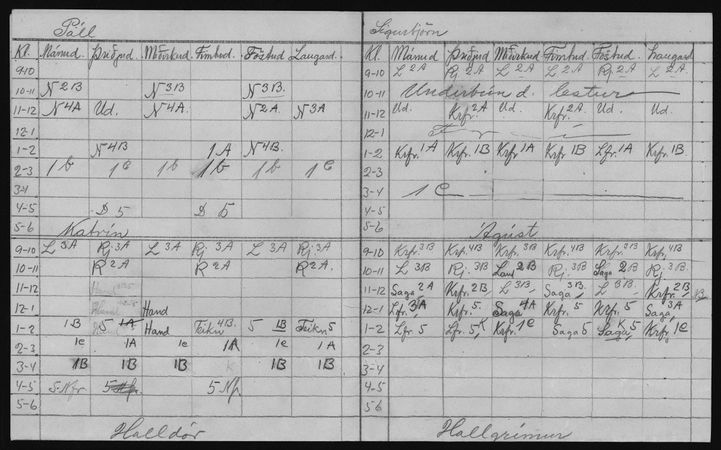 Páll
Kl. Mánud Þriðjud Miðvikud Fimtud. Föstud Laugard.
9-10
10-11 N 2B N 3B N 3B.
11-12 N 4A Ud. N 4A. N 2A. N 3A
12-1
1-2 N 4B 1A N 4B.
2-3 1b 1C 1b 1b 1b 1C
3-4
4-5 D 5 D 5
5-6 Katrín
9-10 L 3A Rj. 3A L 3A Rj 3A L 3A Rj. 3A
10-11 R 2A R 2A R 2A.
11-12 Hand
12-1 Hand Hand
1-2 1B 5 1A Hand Teikn 4B. 5 1B Teikn 5
2-3 1c 1A 1c 1A 1c 1A
3-4 1B 1B 1B 1B 1B
4-5 5 Nfr 5 Nfr.
5-6
Halldór
Sigurbjörn
Kl. Mánud Þriðjud Miðvikud Fimtud Föstud. Laugard
9-10 L 2A Rj 2A L 2A L 2A Rj. 2A L 2A
10-11 Undirbún d. lestur
11-12 Ud. Krfr. 2A Krfr. 2A Ud. Ud.
12-1 F r í
1-2 Krfr. 1A Krfr. 1B Krfr. 1A Krfr. 1B Lfr. 1A Krfr. 1B.
2-3
3-4 1 C
4-5
5-6 Ágúst
9-10 Krfr. 3B Krfr. 4B Krfr. 3B Krfr. 4B Krfr. 3B Krfr. 4B
10-11 L 3B Rj. 3B Land 2B Rj. 3B Saga 2B Rj. 3B
11-12 Saga 2A Krfr. 2B, L 3B, Saga 3B, L 3B. Krfr. 2B,
12-1 Lfr. 3A Krfr. 5. Saga 4A Krfr. 5 Krfr. 5 Saga 3A
1-2 Lfr. 5 Lfr. 5 K Krfr. 1c Saga 5 Saga 5 K Krfr. 1c
2-3
3-4
4-5
5-6
Hallgrímur